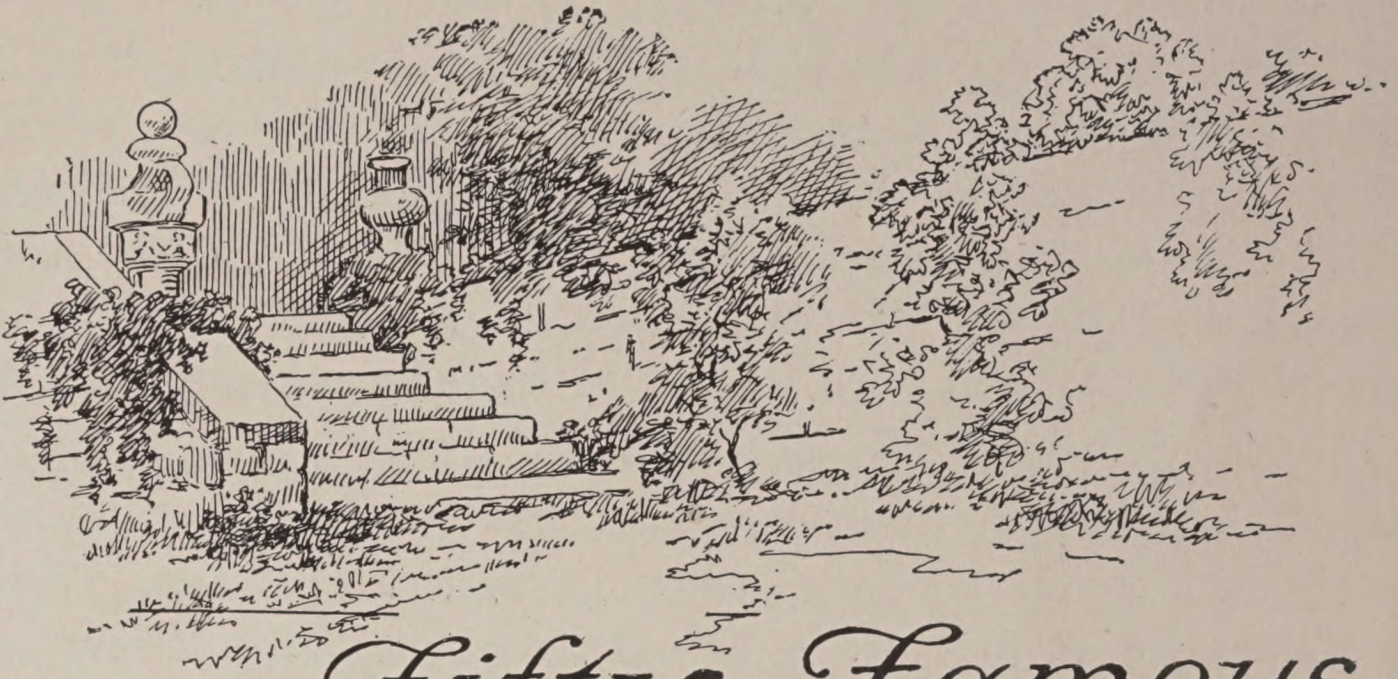 Fifty Famous